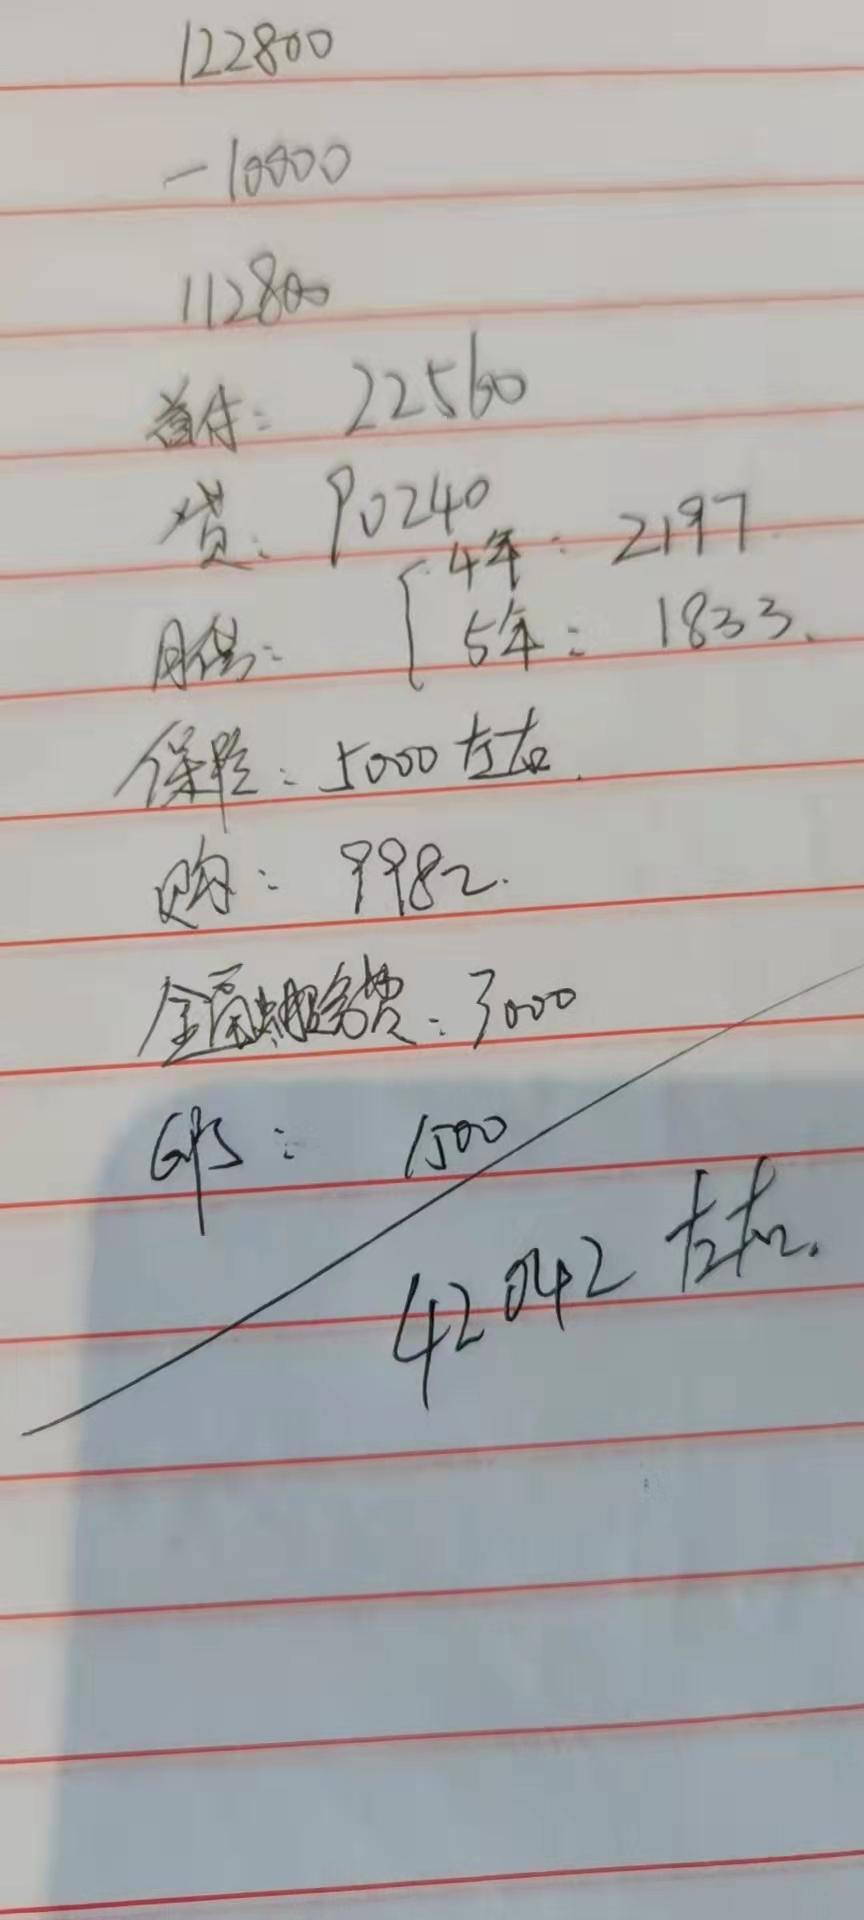 122800
-10000
112800
首付: 22560
贷: 90240
月供: 4年: 2197
5年: 1833.
保险: 5000左右.
购: 9982.
金融服务费: 3000
GPS: 1500
42042左右.